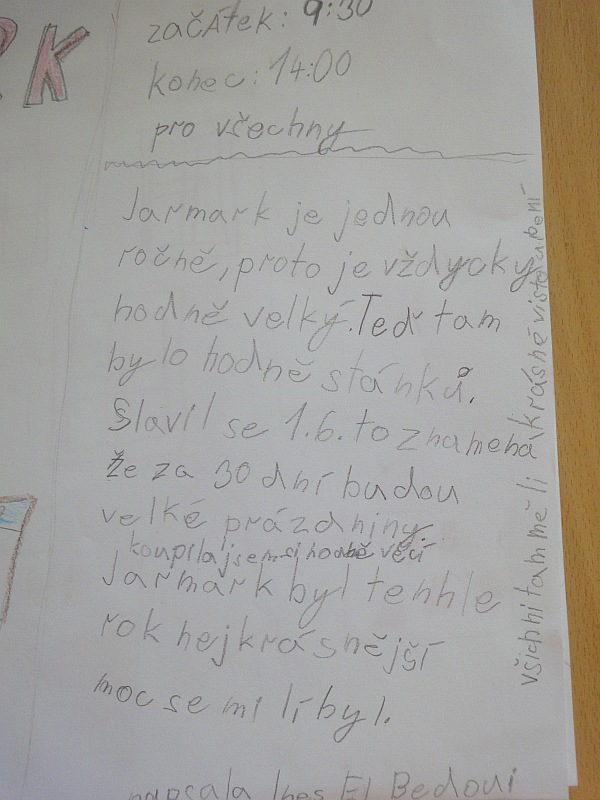 RK
začátek: 9:30
konec: 14:00
pro všechny
Jarmark je jednou
ročně, proto je vždycky
hodně velký. Teď tam
bylo hodně stánků.
Slavil se 1.6. to znamená
že za 30 dní budou
velké prázdniny.
koupila jsem si hodně věcí
Jarmark byl tenhle
rok nejkrásnější
moc se mi líbyl.
napsala Ines El Bedoui
všichni tam měli krásné vistoupení